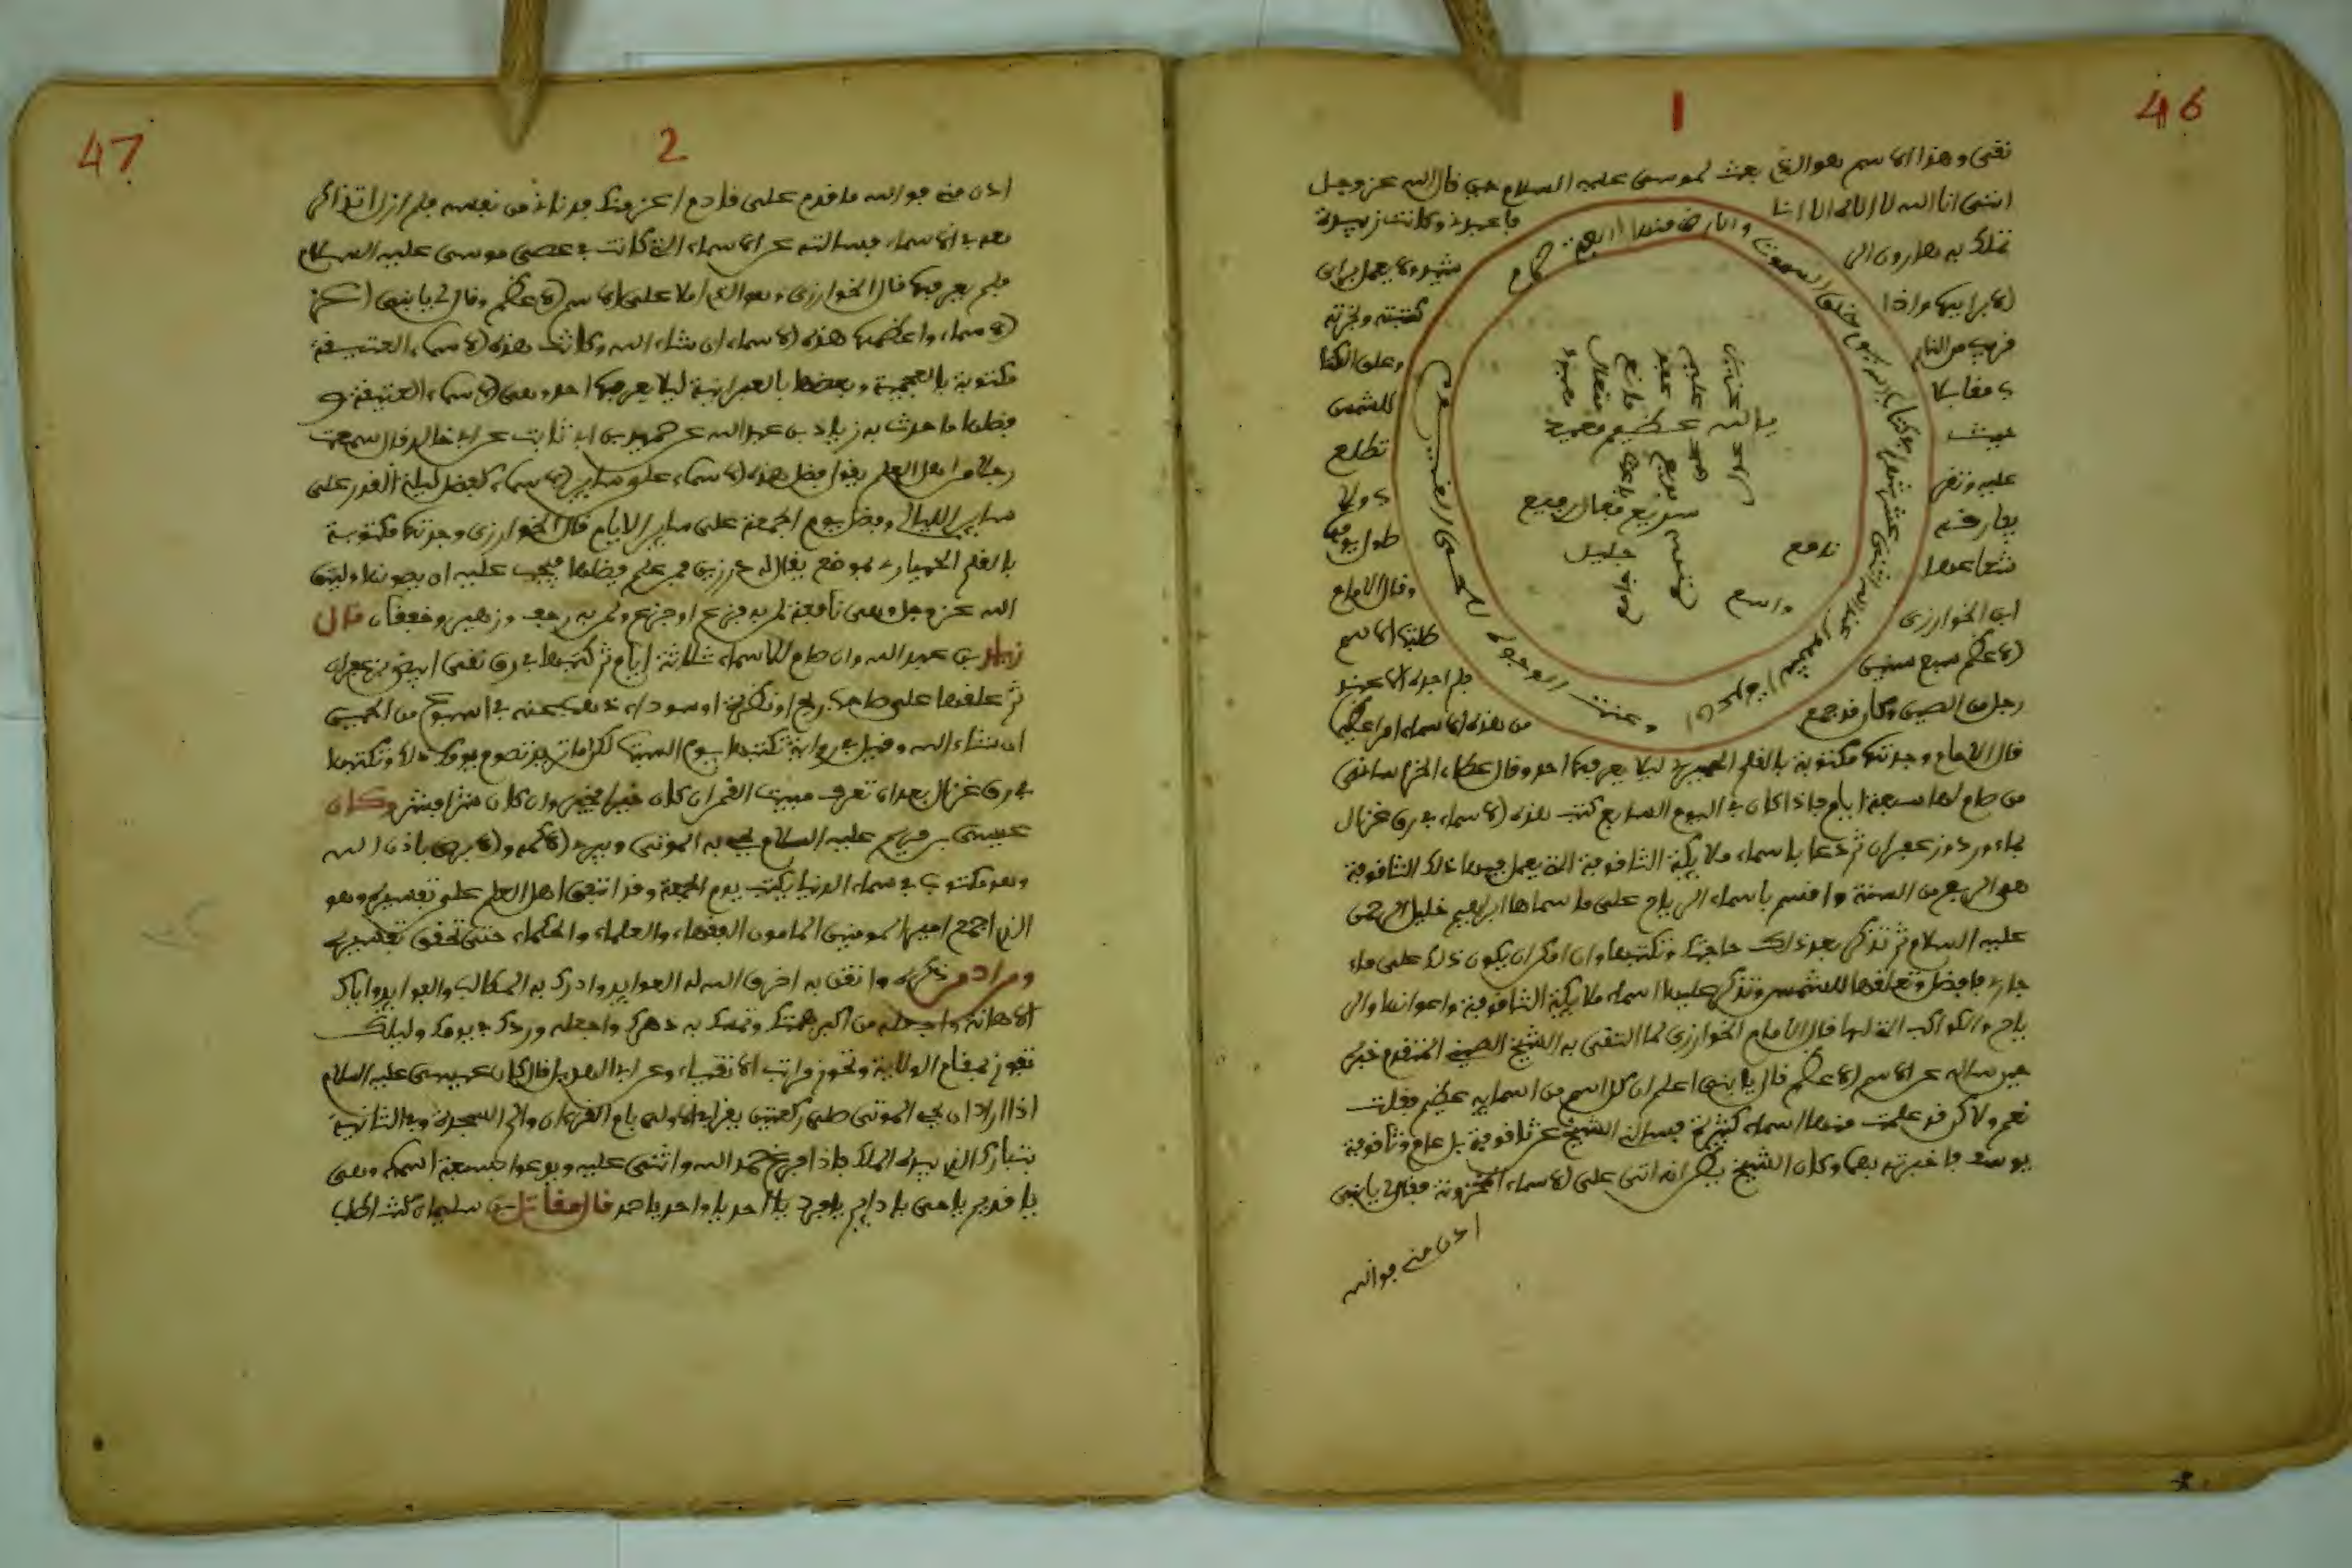 46
1
نقى وهذا الاسم هو الذي بعث لموسى عليه السلام حين قال الله عز وجل
انني انا الله لا اله الا انا فاعبدني وكانت زبيدة
تملك به هارون الى
كتبته وبخرته
قريب من النار وعلى
للشمس
حيث تطلع
عليه وتقى ولا
يفارقه طول يومها
شعاعها وقال الامام
ابن الخوارزي طلبت الاسم
الاعظم سبع سنين فلم اجده الا عند
رجل من الصين وكان قد جمع من هذه الاسماء امر عظيم
ان عدة الشهور عند الله اثنى عشر شهرا في كتاب الله يوم خلق السموت والارض منها اربعة حرم
وعنت الوجوه للحى القيوم
يا الله عظيم
سريع فعال رفيع
نافع
جليل
واسع
قال الامام وجدتها مكتوبة بالقلم الحميري ليلا يعرفها احد وقال عطاء الخراسانى
من صام لها سبعة ايام فاذا كان في اليوم السابع كتب هذه الاسماء في رق غزال
بماء ورد وزعفران ثم دعا باسماء ملايكة الشاقوفة التي يعمل فيها ذلك الشاقوفة
هو الربع من السنة واقسم باسماء الرياح على ما سماها ابراهيم خليل الرحمن
عليه السلام ثم تذكر بعد ذلك حاجتك وتكتبها وان امكن ان يكون ذلك على ماء
جار فافضل وتعلقها للشمس وتذكر عليها اسماء ملايكة الشاقوفة واعوانها والر
ياح والكواكب التي لها قال الامام الخوارزي لما التقى به الشيخ الصيني المتقدم خبره
حين ساله عن الاسم الاعظم قال يا بني اعلم ان كل اسم من اسمايه عظيم فقلت
نعم ولاكن قد علمت منها اسماء كثيرة فسالني الشيخ عن شاقوفة بلعام وشاقوفة
يوسف فاخبرته بها وكان الشيخ يظن انه اتى على الاسماء المخزونة فقال يا بني
ادن مني فوالله
47
2
ادن مني فوالله ما قدم على قادم اعز منك فدنات من نفسه فلم ازل اتذاكر
معه في الاسماء فسالته عن الاسماء التي كانت في عصى موسى عليه السلام
فلم يعرفها قال الخوارزي وهو الذي املا على الاسم الاعظم وقال لي يا بني اكنز
الاسماء واعظمها هذه الاسماء ان شاء الله وكانت هذه الاسماء العتيقة
مكتوبة بالعجمية وبعضها بالعبرانية ليلا يعرفها احد وهي الاسماء العتيقة و
فضلها ما حدث به زياد بن عبد الله عن حميد بن ابي ثابت عن ابي خالد قال سمعت
رجلا من اهل العلم يقول فضل هذه الاسماء على ساير الاسماء كفضل ليلة القدر على
ساير الليالي وفضل يوم الجمعة على ساير الايام قال الخوارزي وجدتها مكتوبة
بالقلم الحميري بموضع يقال له فمن علم فضلها فيجب عليه ان يصونها وليتق
الله عز وجل وهي نافعة لمن به فزع او جزع ولمن به رجف وخفقان قال
زياد بن عبد الله وان صام للاسماء ثلاثة ايام ثم كتبها في رق نقى ابيض بزعفران
ثم علقها على صاحب ريح او نظرة او سوداء ذهب عنه في اسبوع من الحين
ان شاء الله وقيل في رواية تكتبها يوم السبت تصوم يومك ذلك وتكتبها
في رق غزال بعد ان تعرف مبيت القمر ان كان خيرا فخير وان كان شرا فشر وكان
عيسى بن مريم عليه السلام يحي به الموتى ويبرى الاكمه والابرص باذن الله
وهو مكتوب في سماء الدنيا يكتب يوم الجمعة وقد اتفق اهل العلم على تفسيره وهو
الذي اجمع امير المومنين المامون الفقهاء والعلماء والحكماء حتى تحقق تفسيره
ومن ادمن ذكره واتقى به اخرق الله له العوايد وادرك به المطالب والفوايد واياك
الاهانة واجعله من اكبر همتك وتمسك به دهرك واجعله وردك في يومك وليلك
تفوز بمقام الولاية وتحوز مراتب الاتقياء وعن ابي الهديل قال كان عيسى عليه السلام
اذا اراد ان يحي الموتى صلى ركعتين يقرا في الاولى بام القرءان والم السجدة وفي الثانية
بتبارك الذي بيده الملك فاذا فرغ حمد الله واثنى عليه ويدعوا بسبعة اسماء وهي
يا قديم يا حي يا دايم يا فرد يا احد يا واحد يا صمد قال مقاتل بن سليمان كنت اطلب